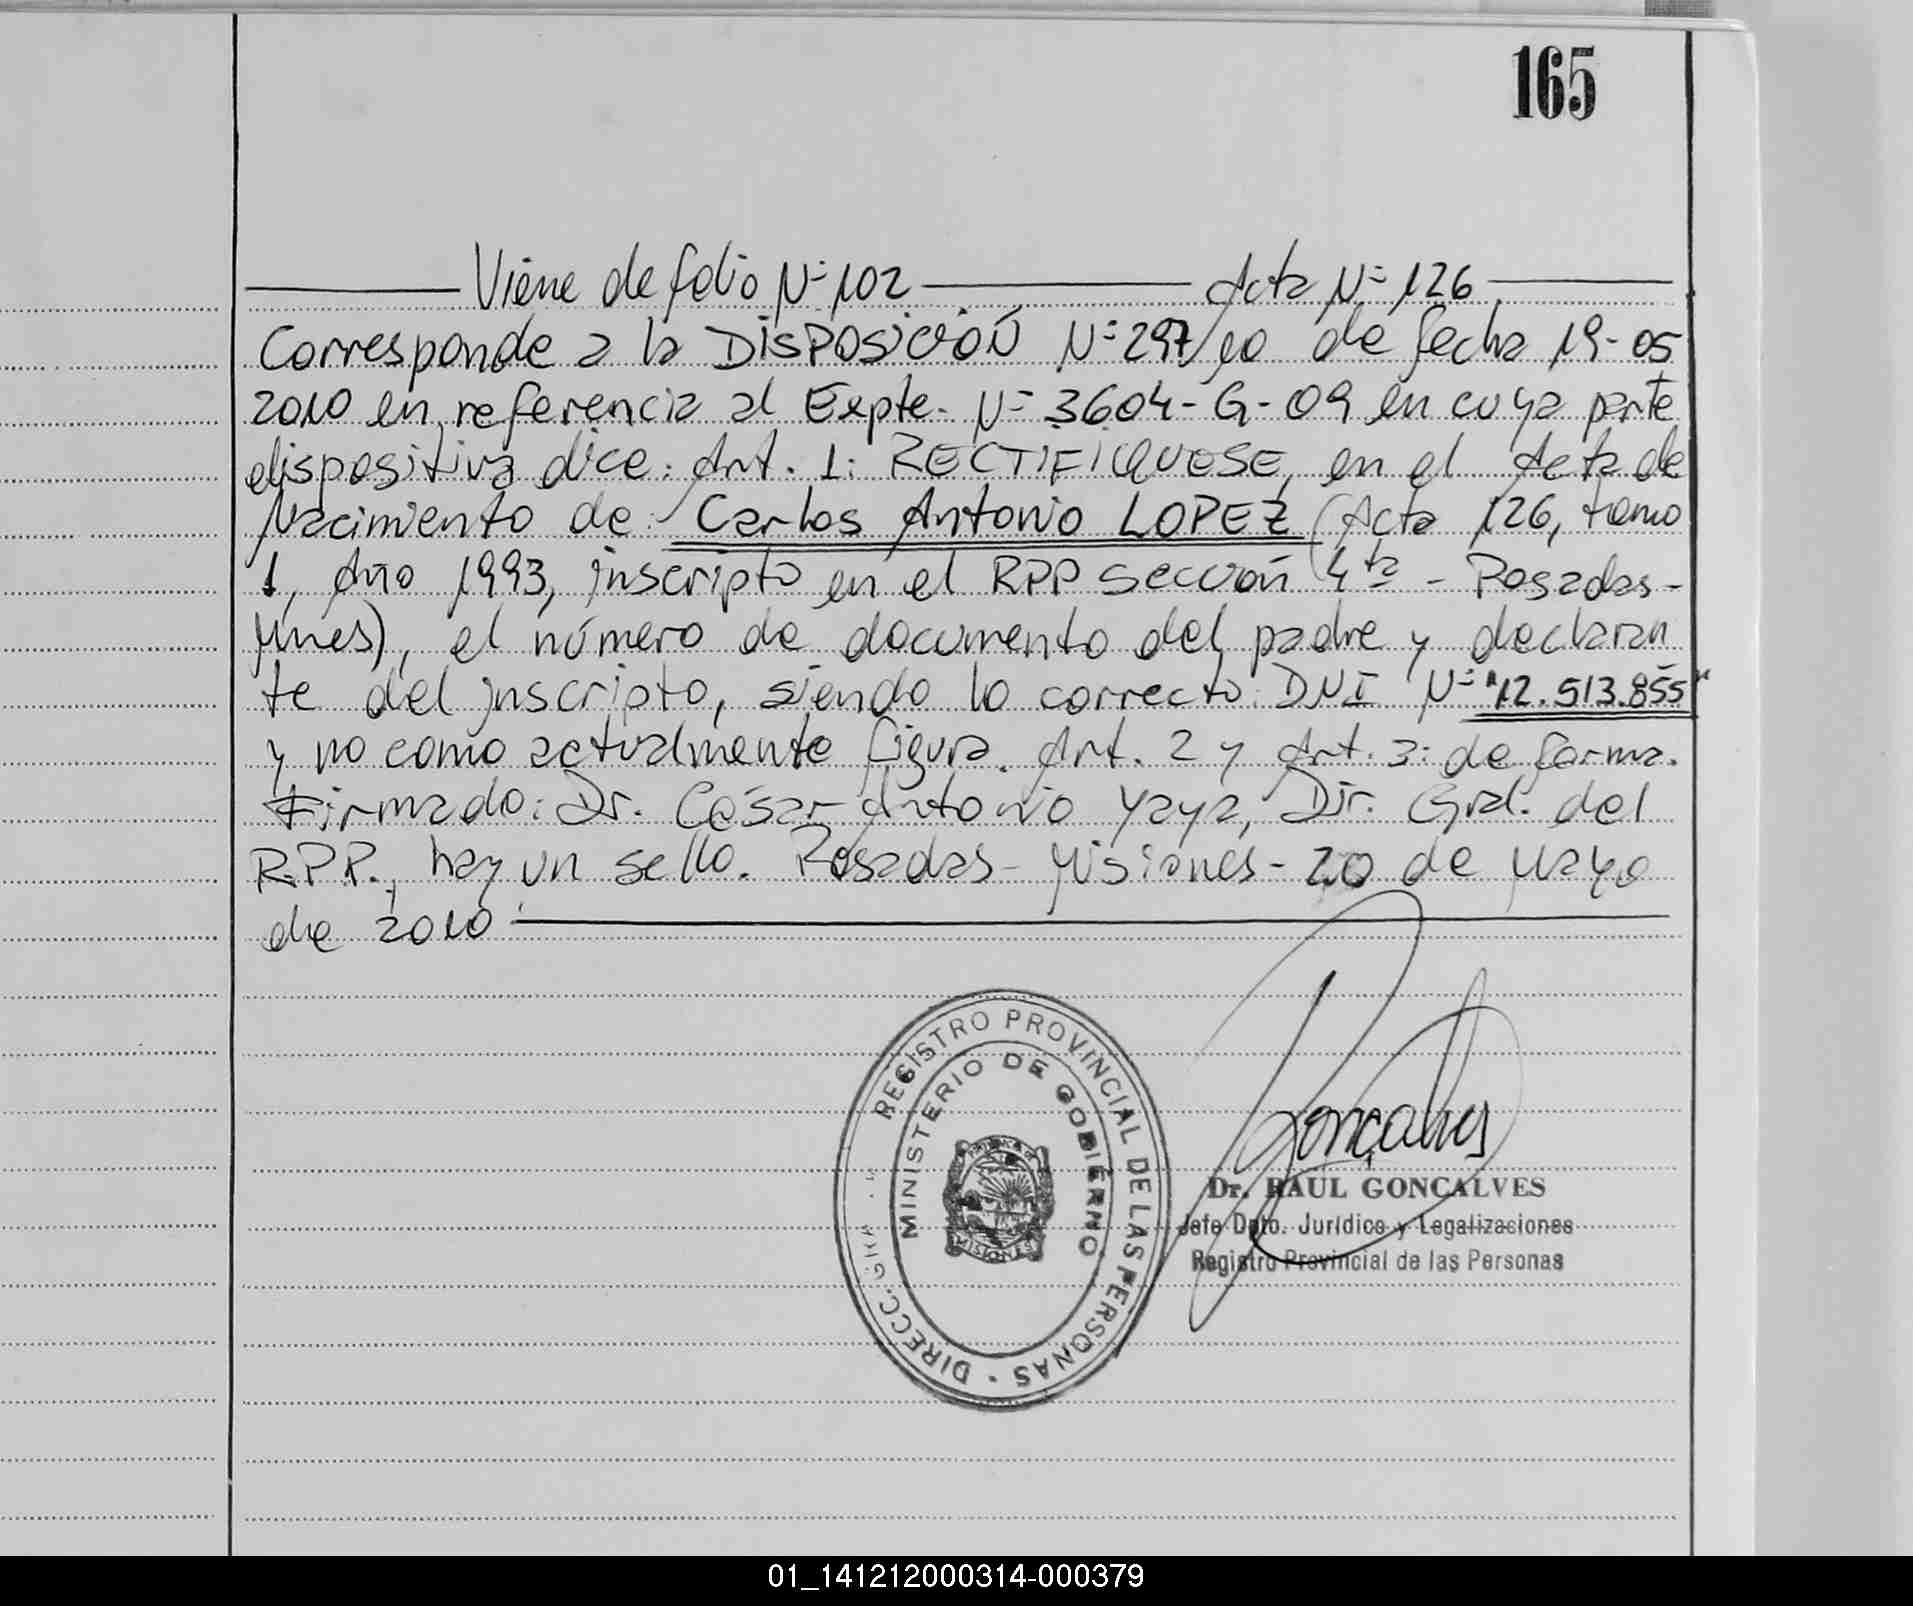 165
Viene de folio Nº 102 Acta Nº 126
Corresponde a la DISPOSICIÓN Nº 297/10 de fecha 19-05
2010 en referencia al Expte. Nº 3604-G-09 en cuya parte
dispositiva dice: Art. 1: RECTIFIQUESE, en el Acta de
Nacimiento de: Carlos Antonio LOPEZ (Acta 126, tomo
1, Año 1993, inscripto en el RPP sección 4ta - Posadas-
Mnes), el número de documento del padre y declaran
te del inscripto, siendo lo correcto: DNI Nº "12.513.855"
y no como actualmente figura. Art. 2 y Art. 3: de forma.
Firmado: Dr. César Antonio Yaya, Dir. Gral. del
R.P.P., hay un sello. Posadas - Misiones - 20 de Mayo
de 2010
REGISTRO PROVINCIAL DE LAS PERSONAS · DIRECC. GRAL.
MINISTERIO DE GOBIERNO
MISIONES
Gonçalves
Dr. RAUL GONÇALVES
Jefe Dpto. Jurídico y Legalizaciones
Registro Provincial de las Personas
01_141212000314-000379